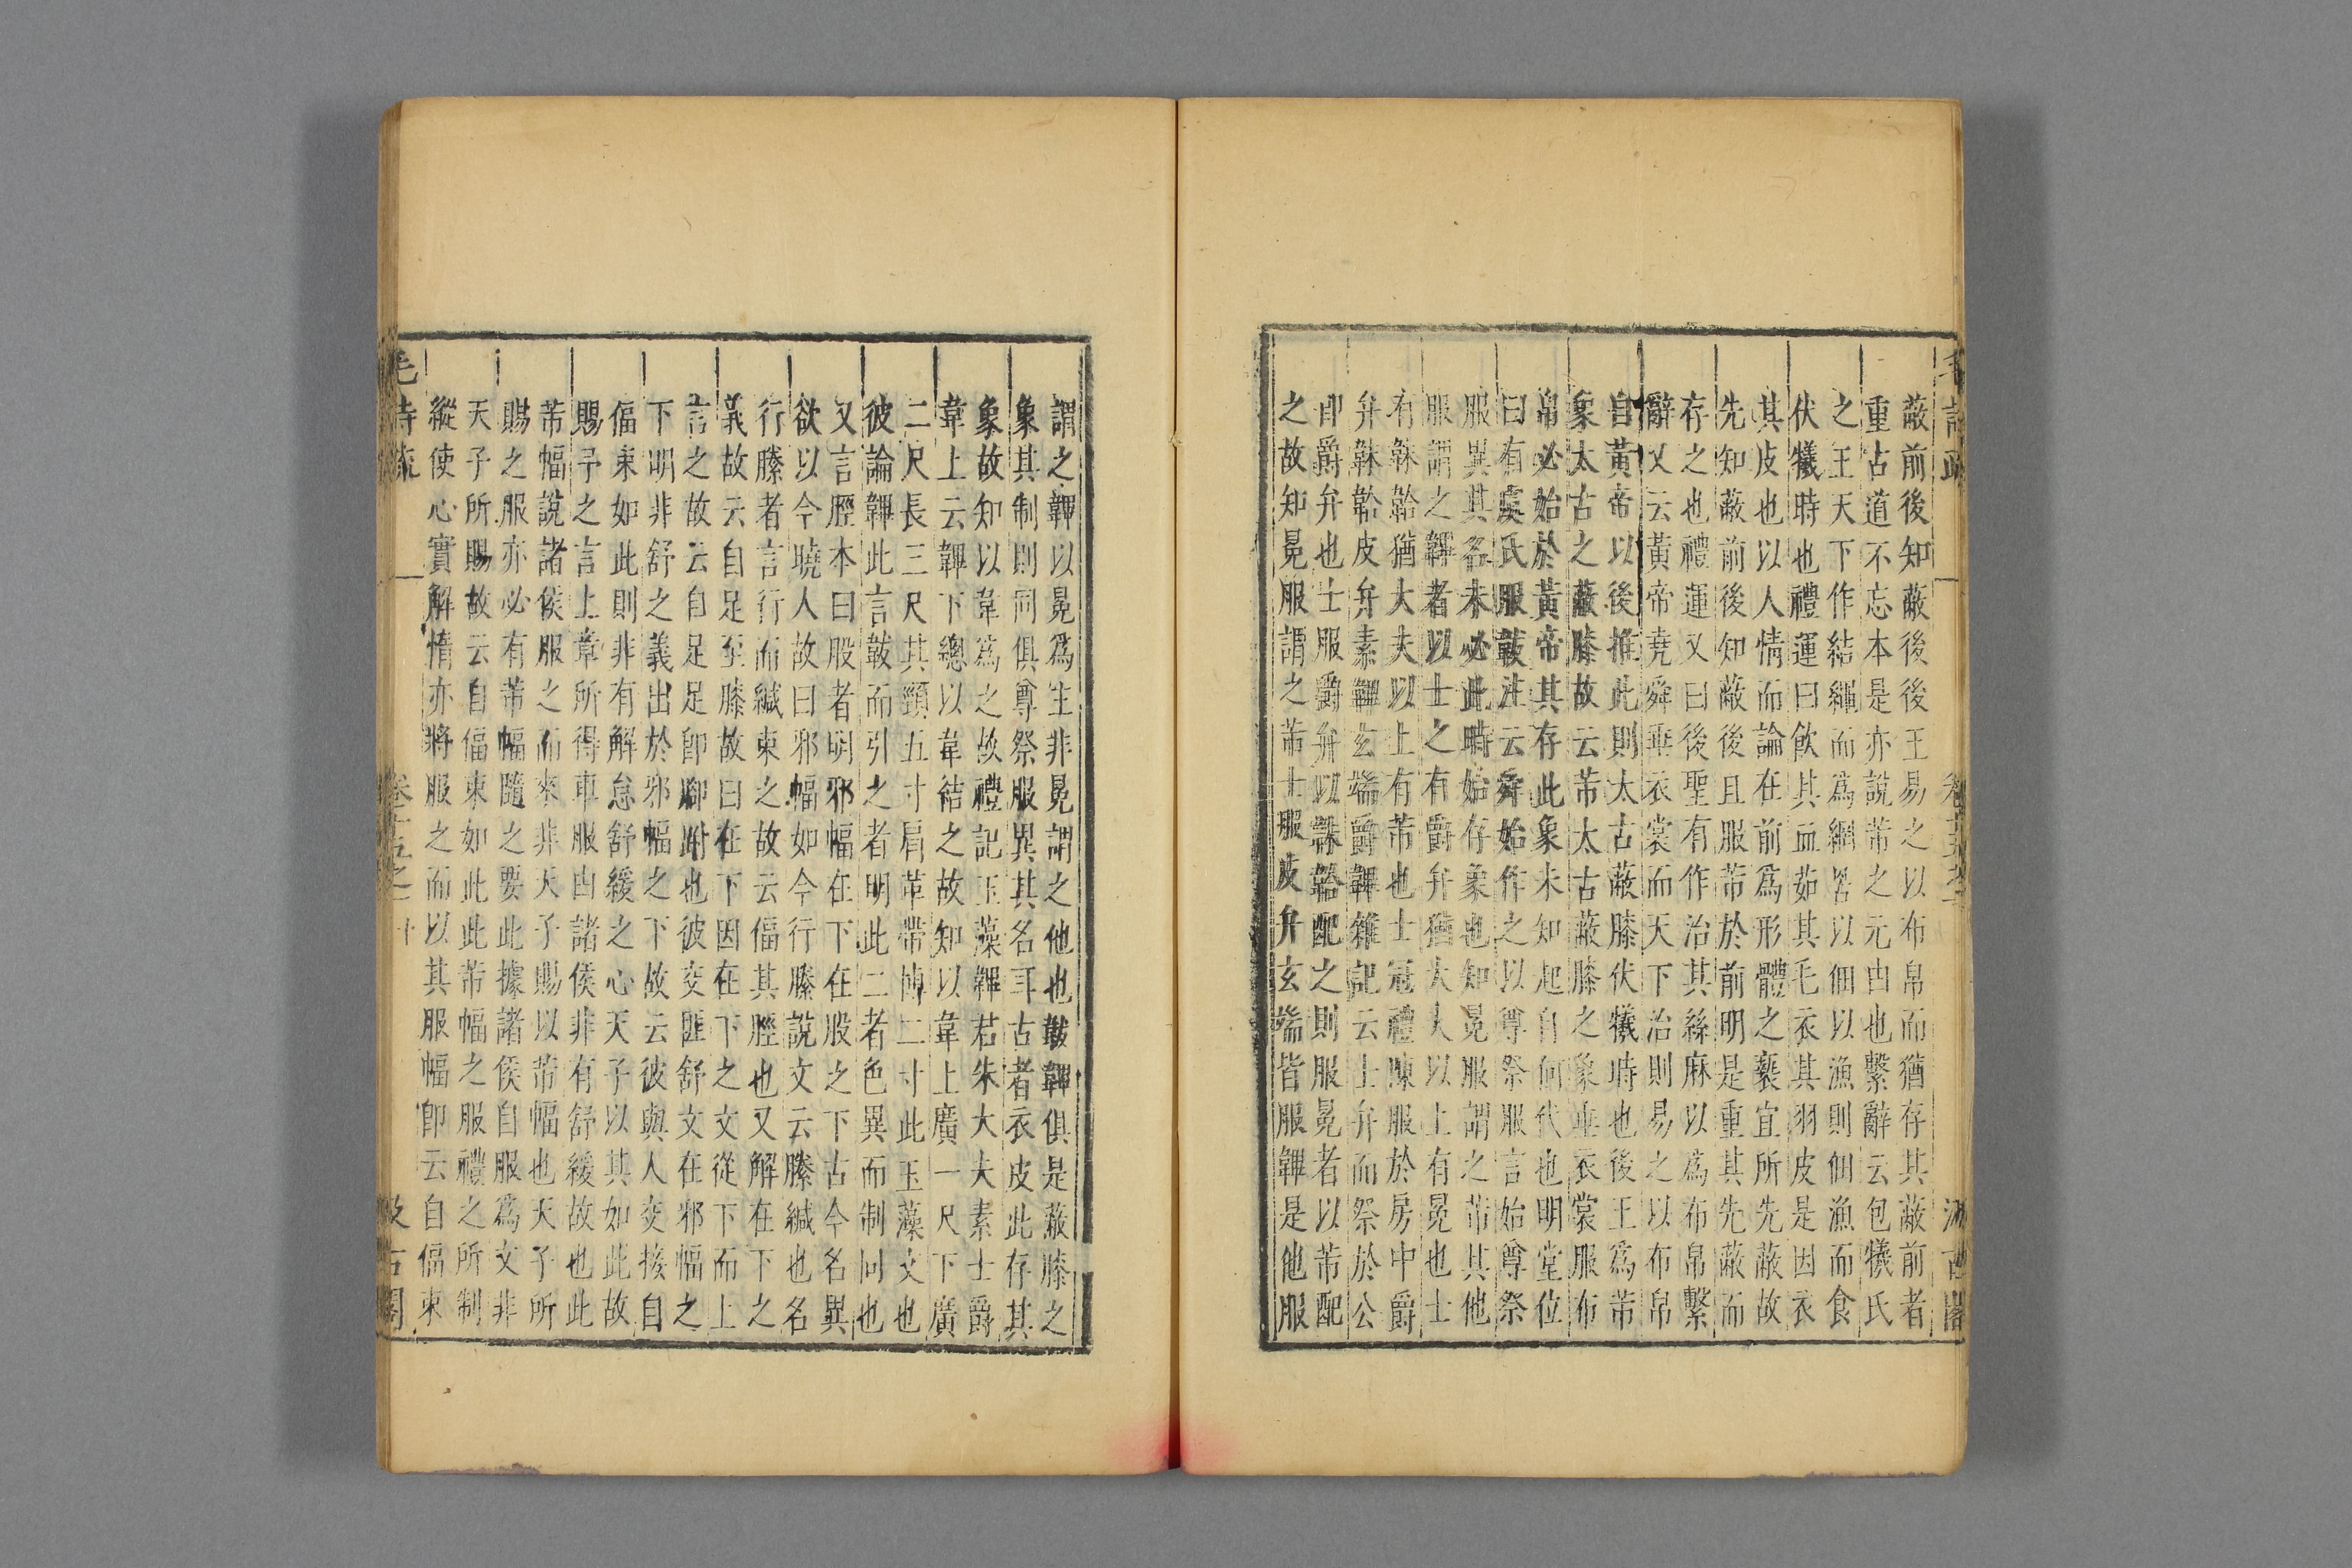 毛詩疏 卷十五之一 汲古閣
蔽前後知蔽後後王易之以布帛而猶存其蔽前者
重古道不忘本是亦說芾之元由也繫辭云包犧氏
之王天下作結繩而為網罟以佃以漁則佃漁而食
伏犧時也禮運曰飲其血茹其毛衣其羽皮是因衣
其皮也以人情而論在前為形體之褻宜所先蔽故
先知蔽前後知蔽後且服芾於前明是重其先蔽而
存之也禮運又曰後聖有作治其絲麻以為布帛繫
辭又云黃帝堯舜垂衣裳而天下治則易之以布帛
自黃帝以後推此則太古蔽膝伏犧時也後王為芾
象太古之蔽膝故云芾太古蔽膝之象垂衣裳服布
帛必始於黃帝其存此象未知起自何代也明堂位
曰有虞氏服韍注云舜始作之以尊祭服言始尊祭
服異其名未必此時始存象也知冕服謂之芾其他
服謂之韠者以士之有爵弁猶大夫以上有冕也士
有韎韐猶大夫以上有芾也士冠禮陳服於房中爵
弁韎韐皮弁素韠玄端爵韠雜記云士弁而祭於公
即爵弁也士服爵弁以韎韐配之則服冕者以芾配
之故知冕服謂之芾士服皮弁玄端皆服韠是他服
謂之韠以冕為主非冕謂之他也韍韠俱是蔽膝之
象其制則同俱尊祭服異其名耳古者衣皮此存其
象故知以韋為之故禮記玉藻韠君朱大夫素士爵
韋上云韠下總以韋結之故知以韋上廣一尺下廣
二尺長三尺其頸五寸肩革帶博二寸此玉藻文也
彼論韠此言韍而引之者明此二者色異而制同也
又言脛本曰股者明邪幅在下在股之下古今名異
欲以今曉人故曰邪幅如今行縢說文云縢緘也名
行縢者言行而緘束之故云偪其脛也又解在下之
義故云自足至膝故曰在下因在下之文從下而上
言之故云自足足即腳跗也彼交匪舒文在邪幅之
下明非舒之義出於邪幅之下故云彼與人交接自
偪束如此則非有解怠舒緩之心天子以其如此故
賜予之言上章所得車服由諸侯非有舒緩故也此
芾幅說諸侯服之而來非天子賜以芾幅也天子所
賜之服亦必有芾幅隨之要此據諸侯自服為文非
天子所賜故云自偪束如此此芾幅之服禮之所制
縱使心實解惰亦將服之而以其服幅即云自偪束
毛詩疏 卷十五之一 十 汲古閣